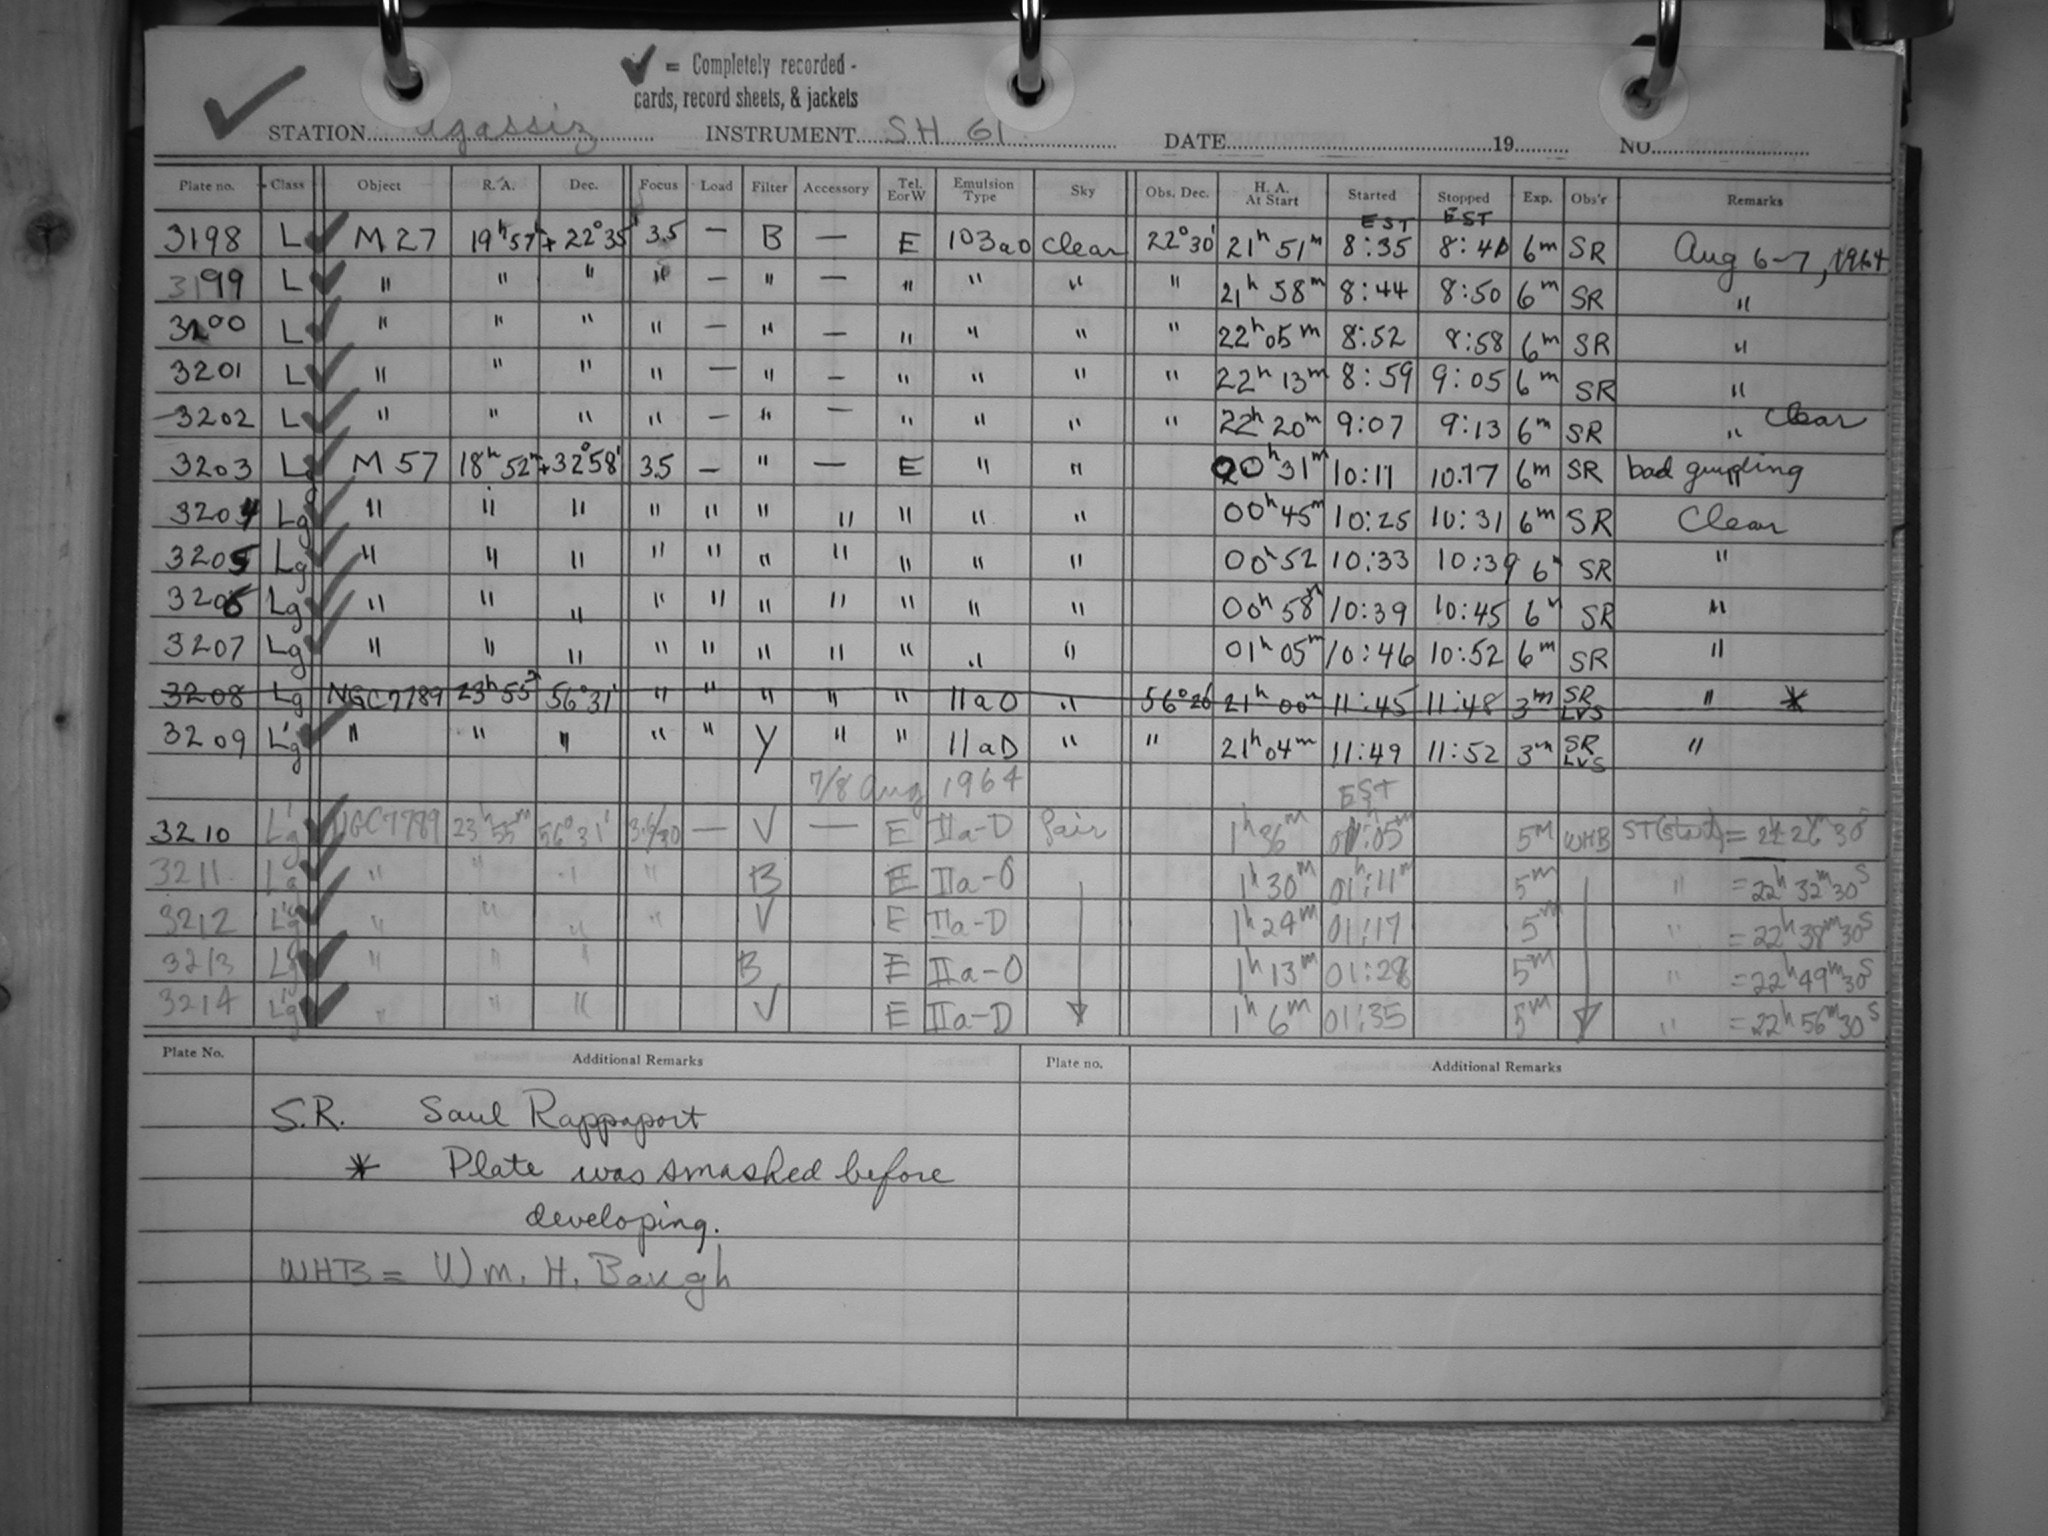 ✓ = Completely recorded -
cards, record sheets, & jackets
STATION Agassiz INSTRUMENT SH 61 DATE 19 NO.
Plate no. Class Object R. A. Dec. Focus Load Filter Accessory Tel. E or W Emulsion Type Sky Obs. Dec. H. A. At Start Started Stopped Exp. Obs'r Remarks
EST EST
3198 L ✓ M 27 19h 57m + 22° 35' 35 — B — E 103a0 clear 22° 30' 21h 51m 8:35 8:41 6m SR Aug 6-7, 1964
3199 L ✓ " " " " — " — " " " " 21h 58m 8:44 8:50 6m SR "
3200 L ✓ " " " " — " — " " " " 22h 05m 8:52 8:58 6m SR "
3201 L ✓ " " " " — " — " " " " 22h 13m 8:59 9:05 6m SR "
3202 L ✓ " " " " — " — " " " " 22h 20m 9:07 9:13 6m SR " clear
3203 L ✓ M 57 18h 52m +32° 58' 35 — " — E " " 00h 31m 10:11 10:17 6m SR bad
3204 Lg ✓ " " " " " " " " " " 00h 45m 10:25 10:31 6m SR Clear
3205 Lg ✓ " " " " " " " " " " 00h 52 10:33 10:39 6m SR "
3206 Lg ✓ " " " " " " " " " " 00h 58m 10:39 10:45 6m SR "
3207 Lg ✓ " " " " " " " " " " 01h 05m 10:46 10:52 6m SR "
3208 Lg NGC7789 23h 55m 56° 31' " " " " " 11a0 " 56° 26' 21h 00m 11:45 11:48 3m SR LVS " *
3209 L'g ✓ " " " " " Y " " 11aD " " 21h 04m 11:49 11:52 3m SR LVS "
7/8 Aug 1964 EST
3210 L'g ✓ NGC7789 23h 55m 56° 31' — V — E IIa-D fair 1h 36m 01:05m 5m WHB ST(start) = 22 26m 30s
3211 Lg ✓ " " " " B E IIa-O 1h 30m 01h:11m 5m " = 22h 32m 30s
3212 L'g ✓ " " " " V E IIa-D 1h 24m 01:17 5m " = 22h 38m 30s
3213 Lg ✓ " " " B E IIa-O 1h 13m 01:28 5m " = 22h 49m 30s
3214 L'g ✓ " " " V E IIa-D 1h 6m 01:35 5m " = 22h 56m 30s
Plate No. Additional Remarks Plate no. Additional Remarks
S.R. Saul Rappaport
* Plate was smashed before
developing.
WHB = Wm. H. Baugh